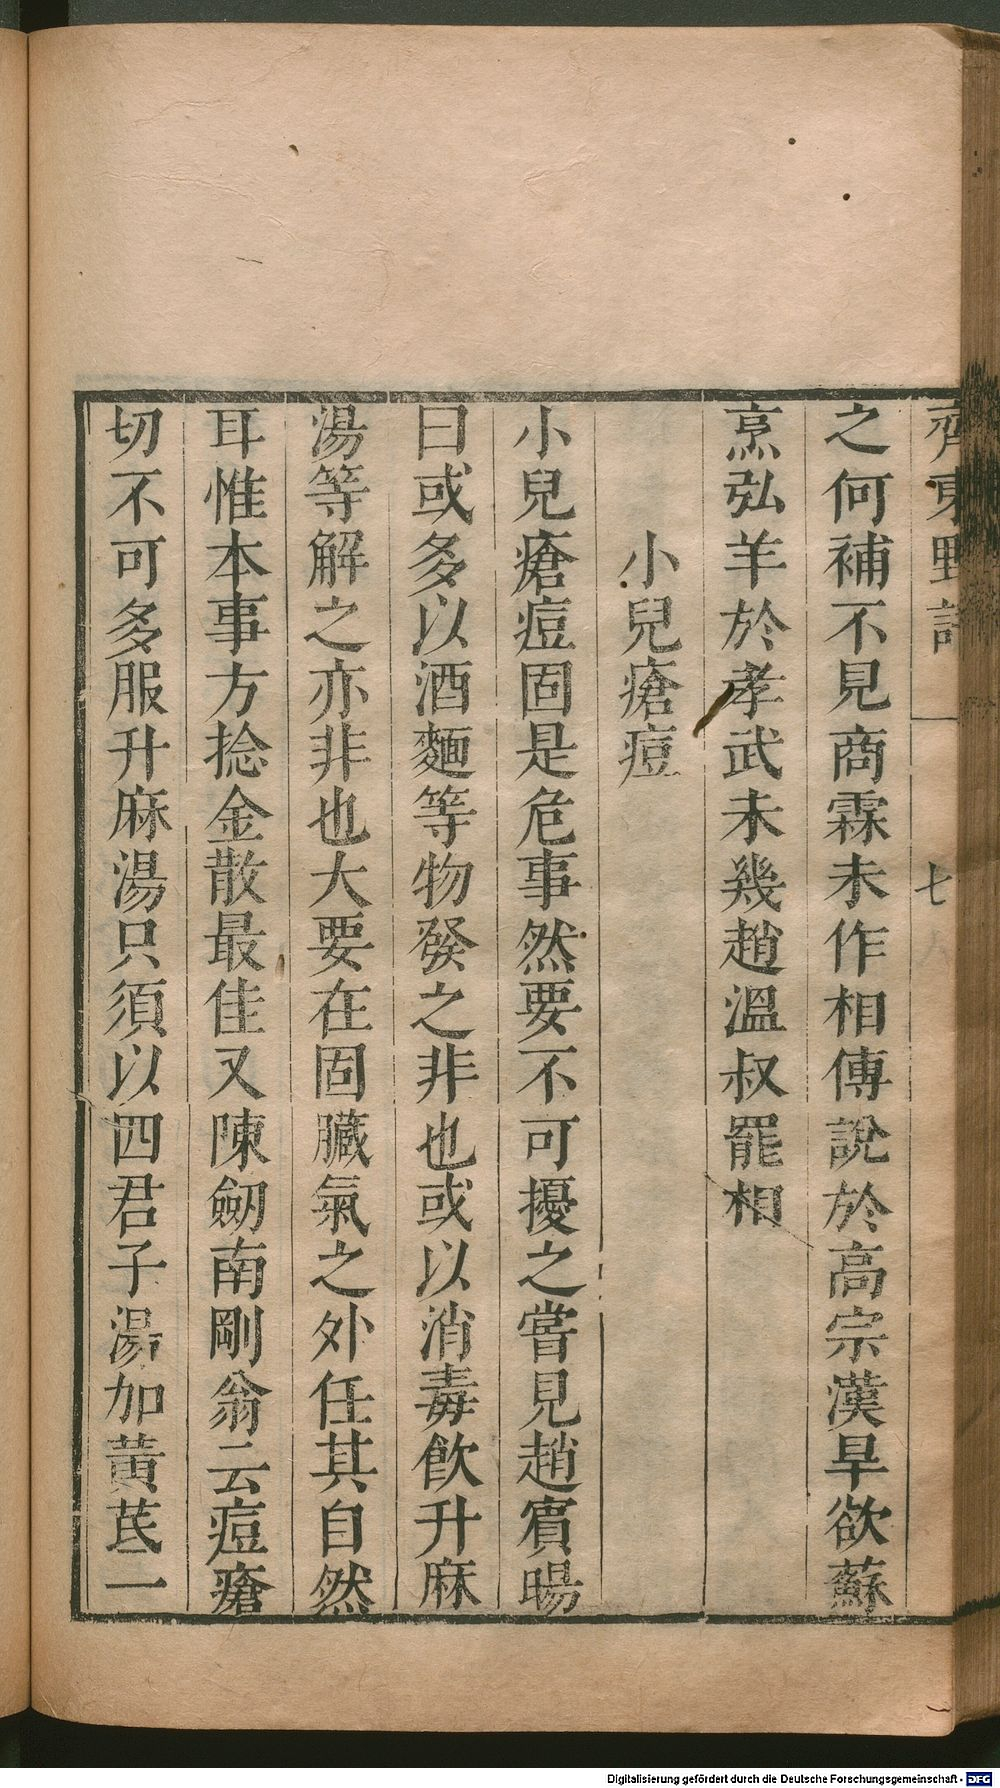 齊東野語
七
之何補不見商霖未作相傳說於高宗漢旱欲蘇
烹弘羊於孝武未幾趙溫叔罷相
小兒瘡痘
小兒瘡痘固是危事然要不可擾之嘗見趙賓暘
曰或多以酒麵等物發之非也或以消毒飲升麻
湯等解之亦非也大要在固臟氣之外任其自然
耳惟本事方捻金散最佳又陳劒南剛翁云痘瘡
切不可多服升麻湯只須以四君子湯加黃芪一
Digitalisierung gefördert durch die Deutsche Forschungsgemeinschaft - DFG